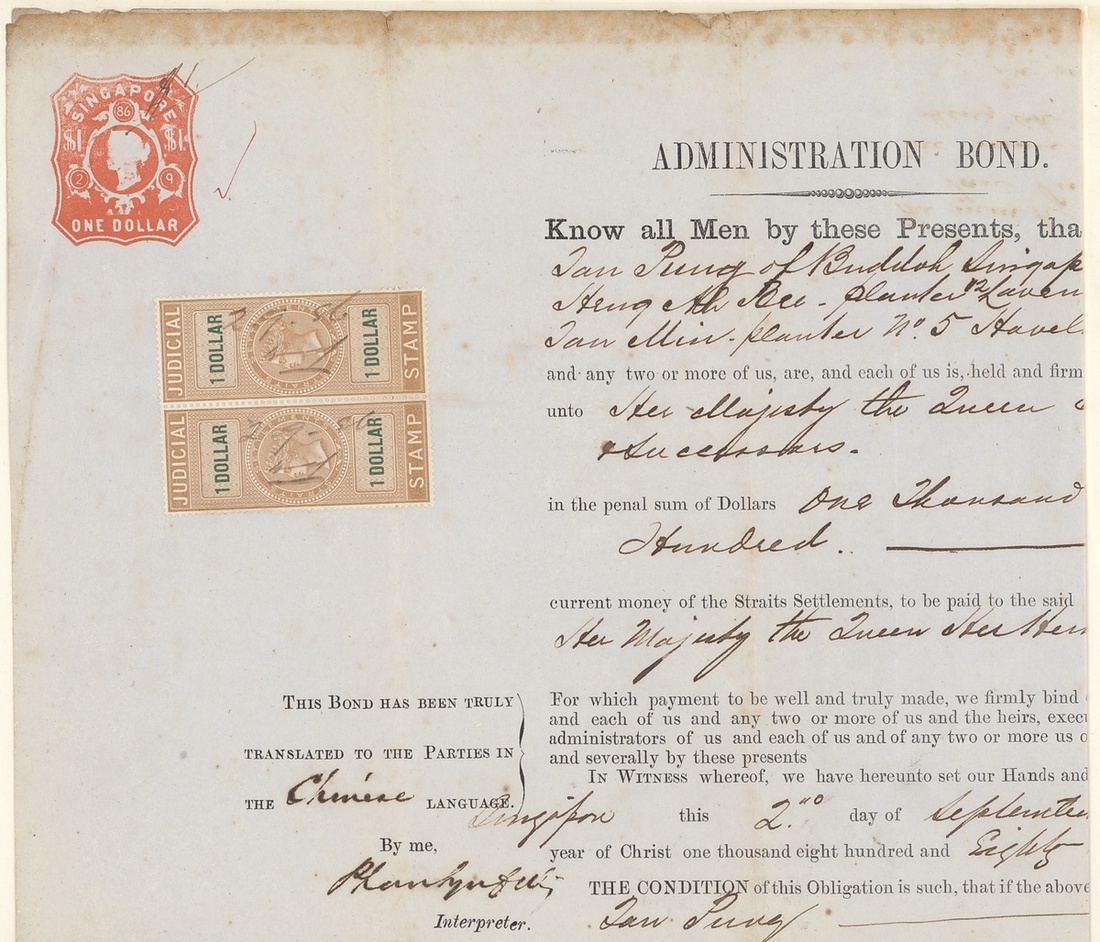 SINGAPORE
86
$1. $1.
2 9
ONE DOLLAR
JUDICIAL
1 DOLLAR
1 DOLLAR
STAMP
JUDICIAL
1 DOLLAR
1 DOLLAR
STAMP
ADMINISTRATION BOND.
Know all Men by these Presents, tha
Tan Pung of Buddoh Singap
Heng Ah - planter 12 Laven
Tan Min - planter No. 5 Havel
and any two or more of us, are, and each of us is, held and firm
unto Her Majesty the Queen
& Successors.
in the penal sum of Dollars One Thousand
Hundred.
current money of the Straits Settlements, to be paid to the said
Her Majesty the Queen Her Heir
For which payment to be well and truly made, we firmly bind
and each of us and any two or more of us and the heirs, execu
administrators of us and each of us and of any two or more us o
and severally by these presents
THIS BOND HAS BEEN TRULY
TRANSLATED TO THE PARTIES IN
THE Chinese LANGUAGE.
By me,
Interpreter.
IN WITNESS whereof, we have hereunto set our Hands and
Singapore this 2nd day of September
year of Christ one thousand eight hundred and Eighty
THE CONDITION of this Obligation is such, that if the above
Tan Pung